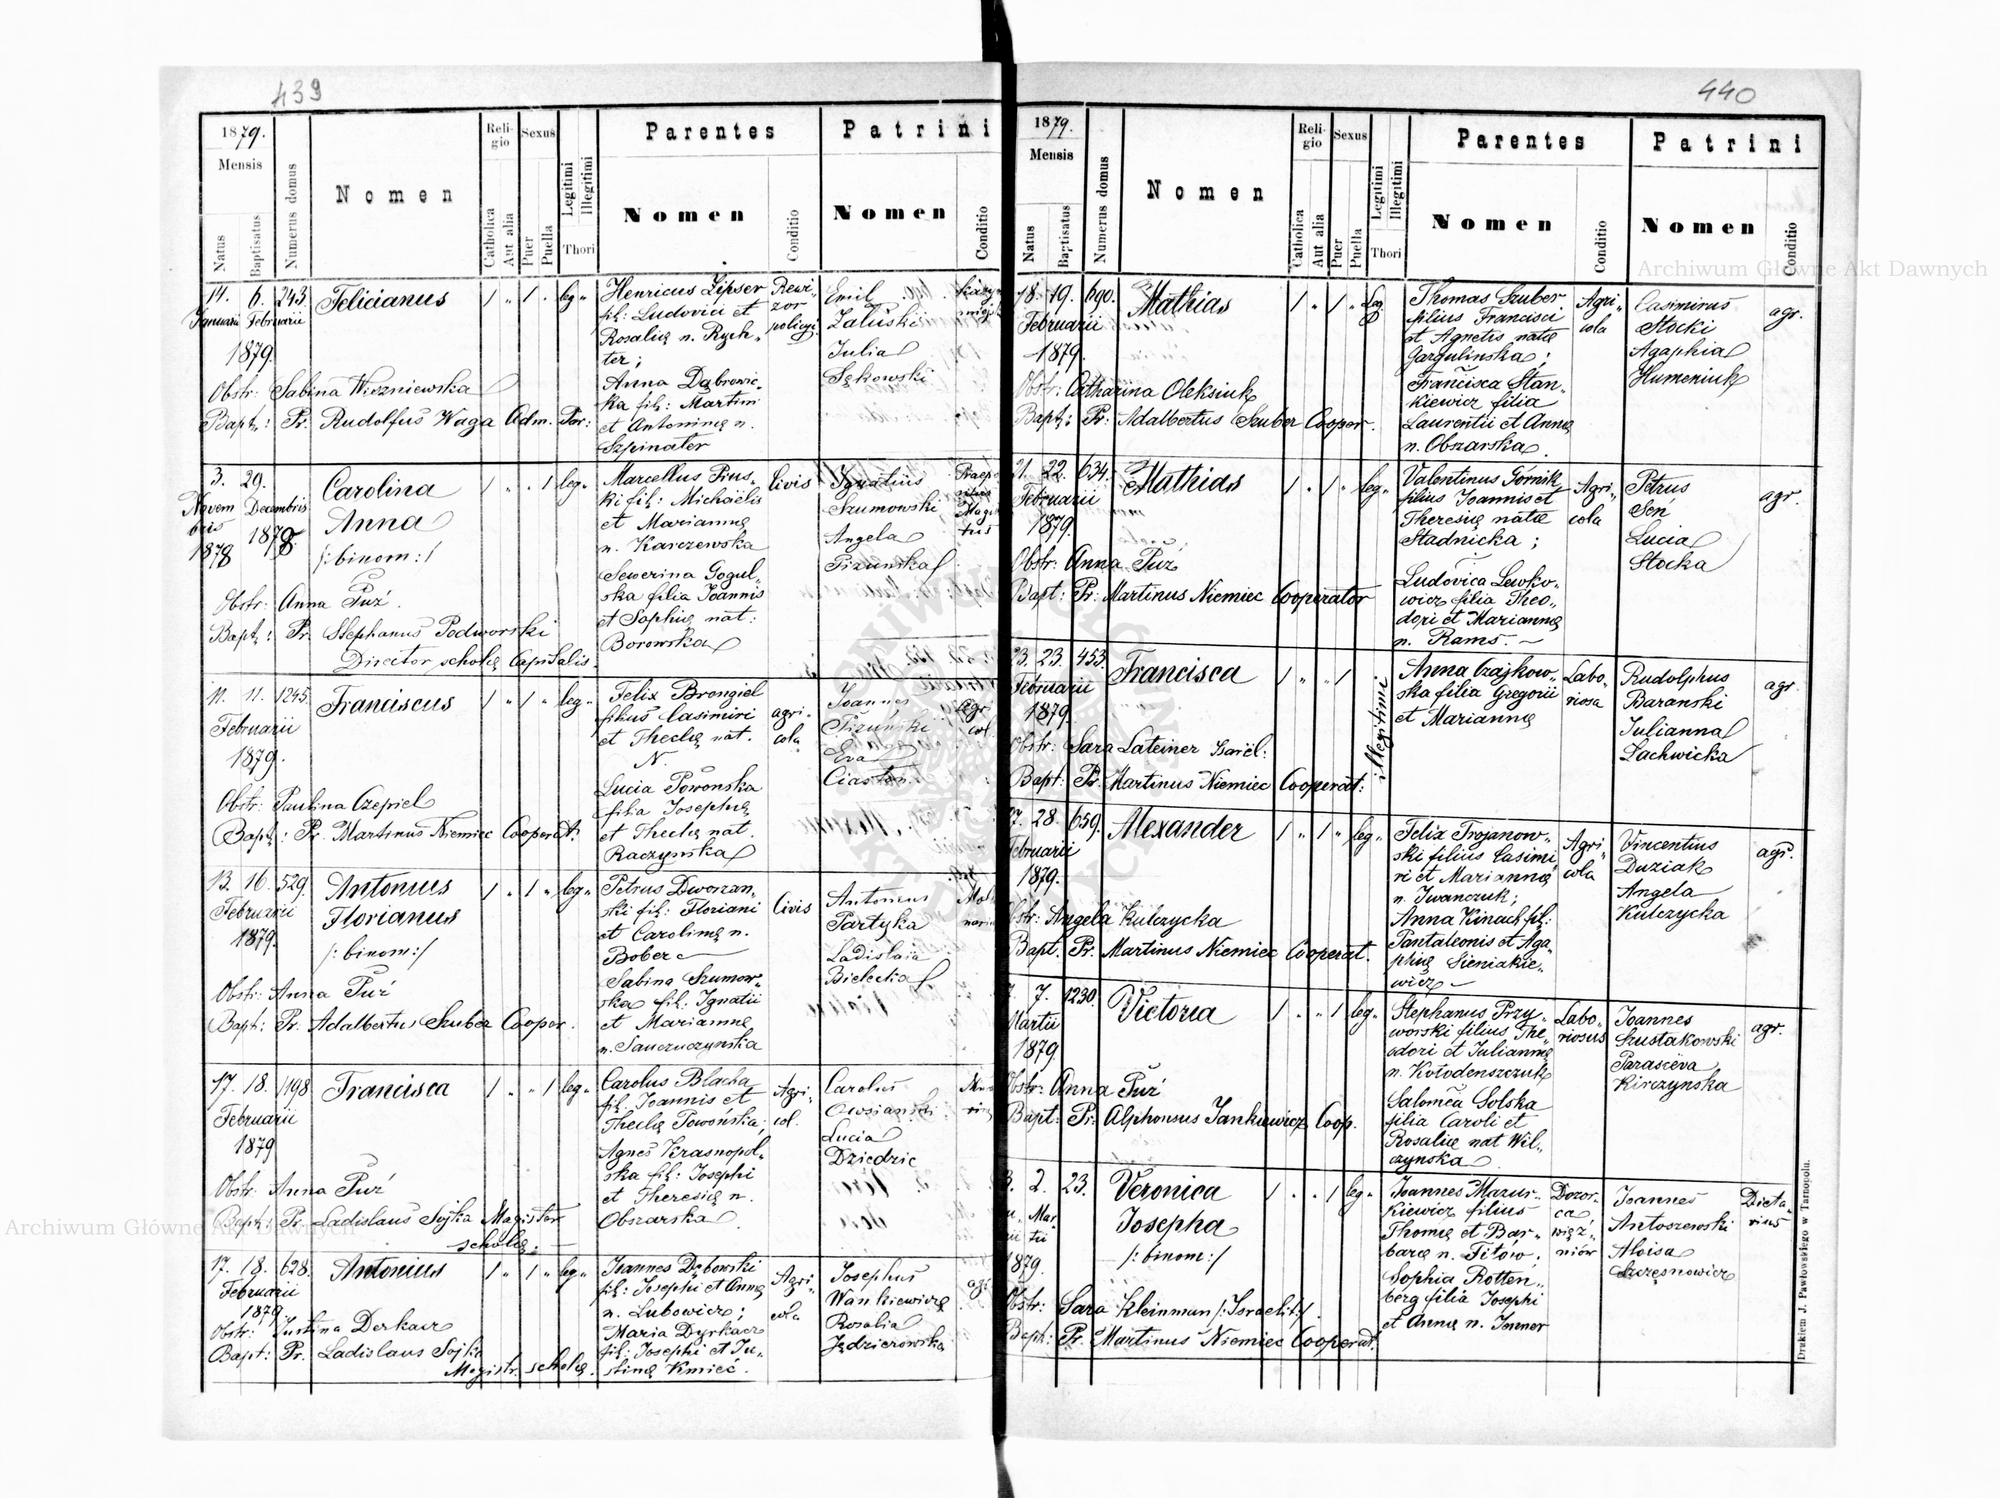 439
1879.
Mensis
Natus
Baptisatus
Numerus domus
Nomen
Religio
Catholica
Aut alia
Sexus
Puer
Puella
Legitimi
Illegitimi
Thori
Parentes
Nomen
Conditio
Patrini
Nomen
Conditio
14. 6. 243. Felicianus 1 " 1 . leg"
Januarii Februarii
1879.
Obstr: Sabina Wiszniewska
Bapt: Pr. Rudolfus Waga Adm. Par:
Henricus Lipser
fil: Ludovici et
Rosalię n. Rych-
ter;
Anna Dąbrowic-
ka fil: Martini
et Antoninę n.
Szpinater
Rewi-
zor
policyi
Emil
Załuski
Julia
Sękowski
3. 29. Carolina 1 " . 1 leg"
Novem Decembris Anna
bris 1878
1878 /:binom:/
Obstr: Anna Puź.
Bapt: Pr. Stephanus Podworski
Director scholę Capitalis.
Marcellus Prus-
ki fil: Michaëlis
et Mariannę
n. Karczewska
Sewerina Gogul-
ska filia Joannis
et Sophię nat:
Borowska
Civis
Ignatius
Szumowski
Angela
Pizunska
11. 11. 1245. Franciscus 1 " 1 " leg"
Februarii
1879.
Obstr: Paulina Czepiel
Bapt: Pr. Martinus Niemiec Cooperat:
Felix Brongiel
filius Casimiri
et Theclę nat.
N.
Lucia Powonska
filia Josephię
et Theclę nat.
Raczynska
agri-
cola
Joannes
Pizunski
Eva
Ciaston
agr
col.
13. 16. 529. Antonius 1 " 1 " leg"
Februarii Florianus
1879. /: binom:/
Obstr: Anna Puź
Bapt: Pr. Adalbertus Szuber Cooper.
Petrus Dworzan-
ski fil: Floriani
et Carolinę n.
Bober
Sabina Szumow-
ska fil: Ignatii
et Mariannę
Civis
Antonius
Partyka
Ladislaia
Bielecka
17. 18. 1198 Francisca 1 " " 1 leg"
Februarii
1879
Obstr: Anna Puź
Bapt: Pr. Ladislaus Sojka Magister
scholę.
Carolus Blacha
fil: Joannis et
Theclę Powońska;
Agnes Krasnopol-
ska fil: Josephi
et Theresię n.
Obszarska
Agri-
col.
Carolus
Owsianski
Lucia
Dziedzic
17. 18. 628. Antonius 1 " 1 " leg"
Februarii
1879
Obstr: Justina Derkacz
Bapt: Pr. Ladislaus Sojka
Magistr. scholę.
Joannes Dębowski
fil: Josephi et Annę
n. Lubowicz;
Maria Dyrkacz
fil: Josephi et Ju-
stinę Kmieć.
Agri-
cola
Josephus
Wankiewicz
Rosalia
Jędzierowska
agr
440
1879.
Mensis
Natus
Baptisatus
Numerus domus
Nomen
Religio
Catholica
Aut alia
Sexus
Puer
Puella
Legitimi
Illegitimi
Thori
Parentes
Nomen
Conditio
Patrini
Nomen
Conditio
18. 19. 690. Mathias 1 " 1 " Leg
Februarii
1879.
Obstr: Catharina Oleksiuk
Bapt: Pr. Adalbertus Szuber Cooper.
Thomas Szuber
filius Francisci
et Agnetis natæ
Gargulinska;
Francisca Stan-
kiewicz filia
Laurentii et Annę
n. Obszarska.
Agri-
cola
Casimirus
Stocki
Agaphia
Humeniuk
agr.
21. 22. 634. Mathias 1 . 1 " leg"
Februarii
1879.
Obstr: Anna Puź
Bapt: Pr. Martinus Niemiec Cooperator
Valentinus Górnik
filius Joannis et
Theresię natæ
Stadnicka;
Ludovica Lewko-
wicz filia Theo-
dori et Mariannę
n. Rams.
Agri-
cola
Petrus
Sen
Lucia
Stocka
agr.
23. 23. 453. Francisca 1 " " 1 illegitimi
Februarii
1879.
Obstr: Sara Lateiner Isaröl:
Bapt: Pr. Martinus Niemiec Cooperat:
Anna Czajkow-
ska filia Gregorii
et Mariannę
Labo-
riosa
Rudolphus
Baranski
Julianna
Lachwicka
agr.
27. 28. 659. Alexander 1 " 1 " leg"
Februarii
1879.
Obstr: Angela Kulczycka
Bapt. Pr. Martinus Niemiec Cooperat.
Felix Trojanow-
ski filius Casimi-
ri et Mariannę
n. Iwanczuk;
Anna Kinach fil:
Pantaleonis et Aga-
phię Sieniakie-
wicz
Agri-
cola
Vincentius
Duziak
Angela
Kulczycka
agr.
7. 7. 1230. Victoria 1 " " 1 leg"
Martii
1879.
Obstr: Anna Puź
Bapt: Pr: Alphonsus Jankiewicz Coop.
Stephanus Przy-
worski filius The-
odori et Juliannę
n. Kołodenszczuk
Salomea Solska
filia Caroli et
Rosalię nat Wil-
czynska
Labo-
riosus
Joannes
Szustakowski
Parascëva
Kirczynska
agr.
3. 2. 23. Veronica 1 . . 1 leg"
Mar- Josepha
tii /: binom:/
1879.
Obstr: Sara Kleinman /:Israelit:/
Bapt: Pr. Martinus Niemiec Cooperat.
Joannes Mazur-
kiewicz filius
Thomę et Bar-
barę n. Titow;
Sophia Rotten-
berg filia Josephi
et Annę n. Jenner
Dozor-
ca
więź-
niów
Joannes
Antoszewski
Aloisa
Szczęsnowicz
Dieta-
rius
Drukiem J. Pawłowskiego w Tarnopolu.
Archiwum Główne Akt Dawnych
Archiwum Główne Akt Dawnych